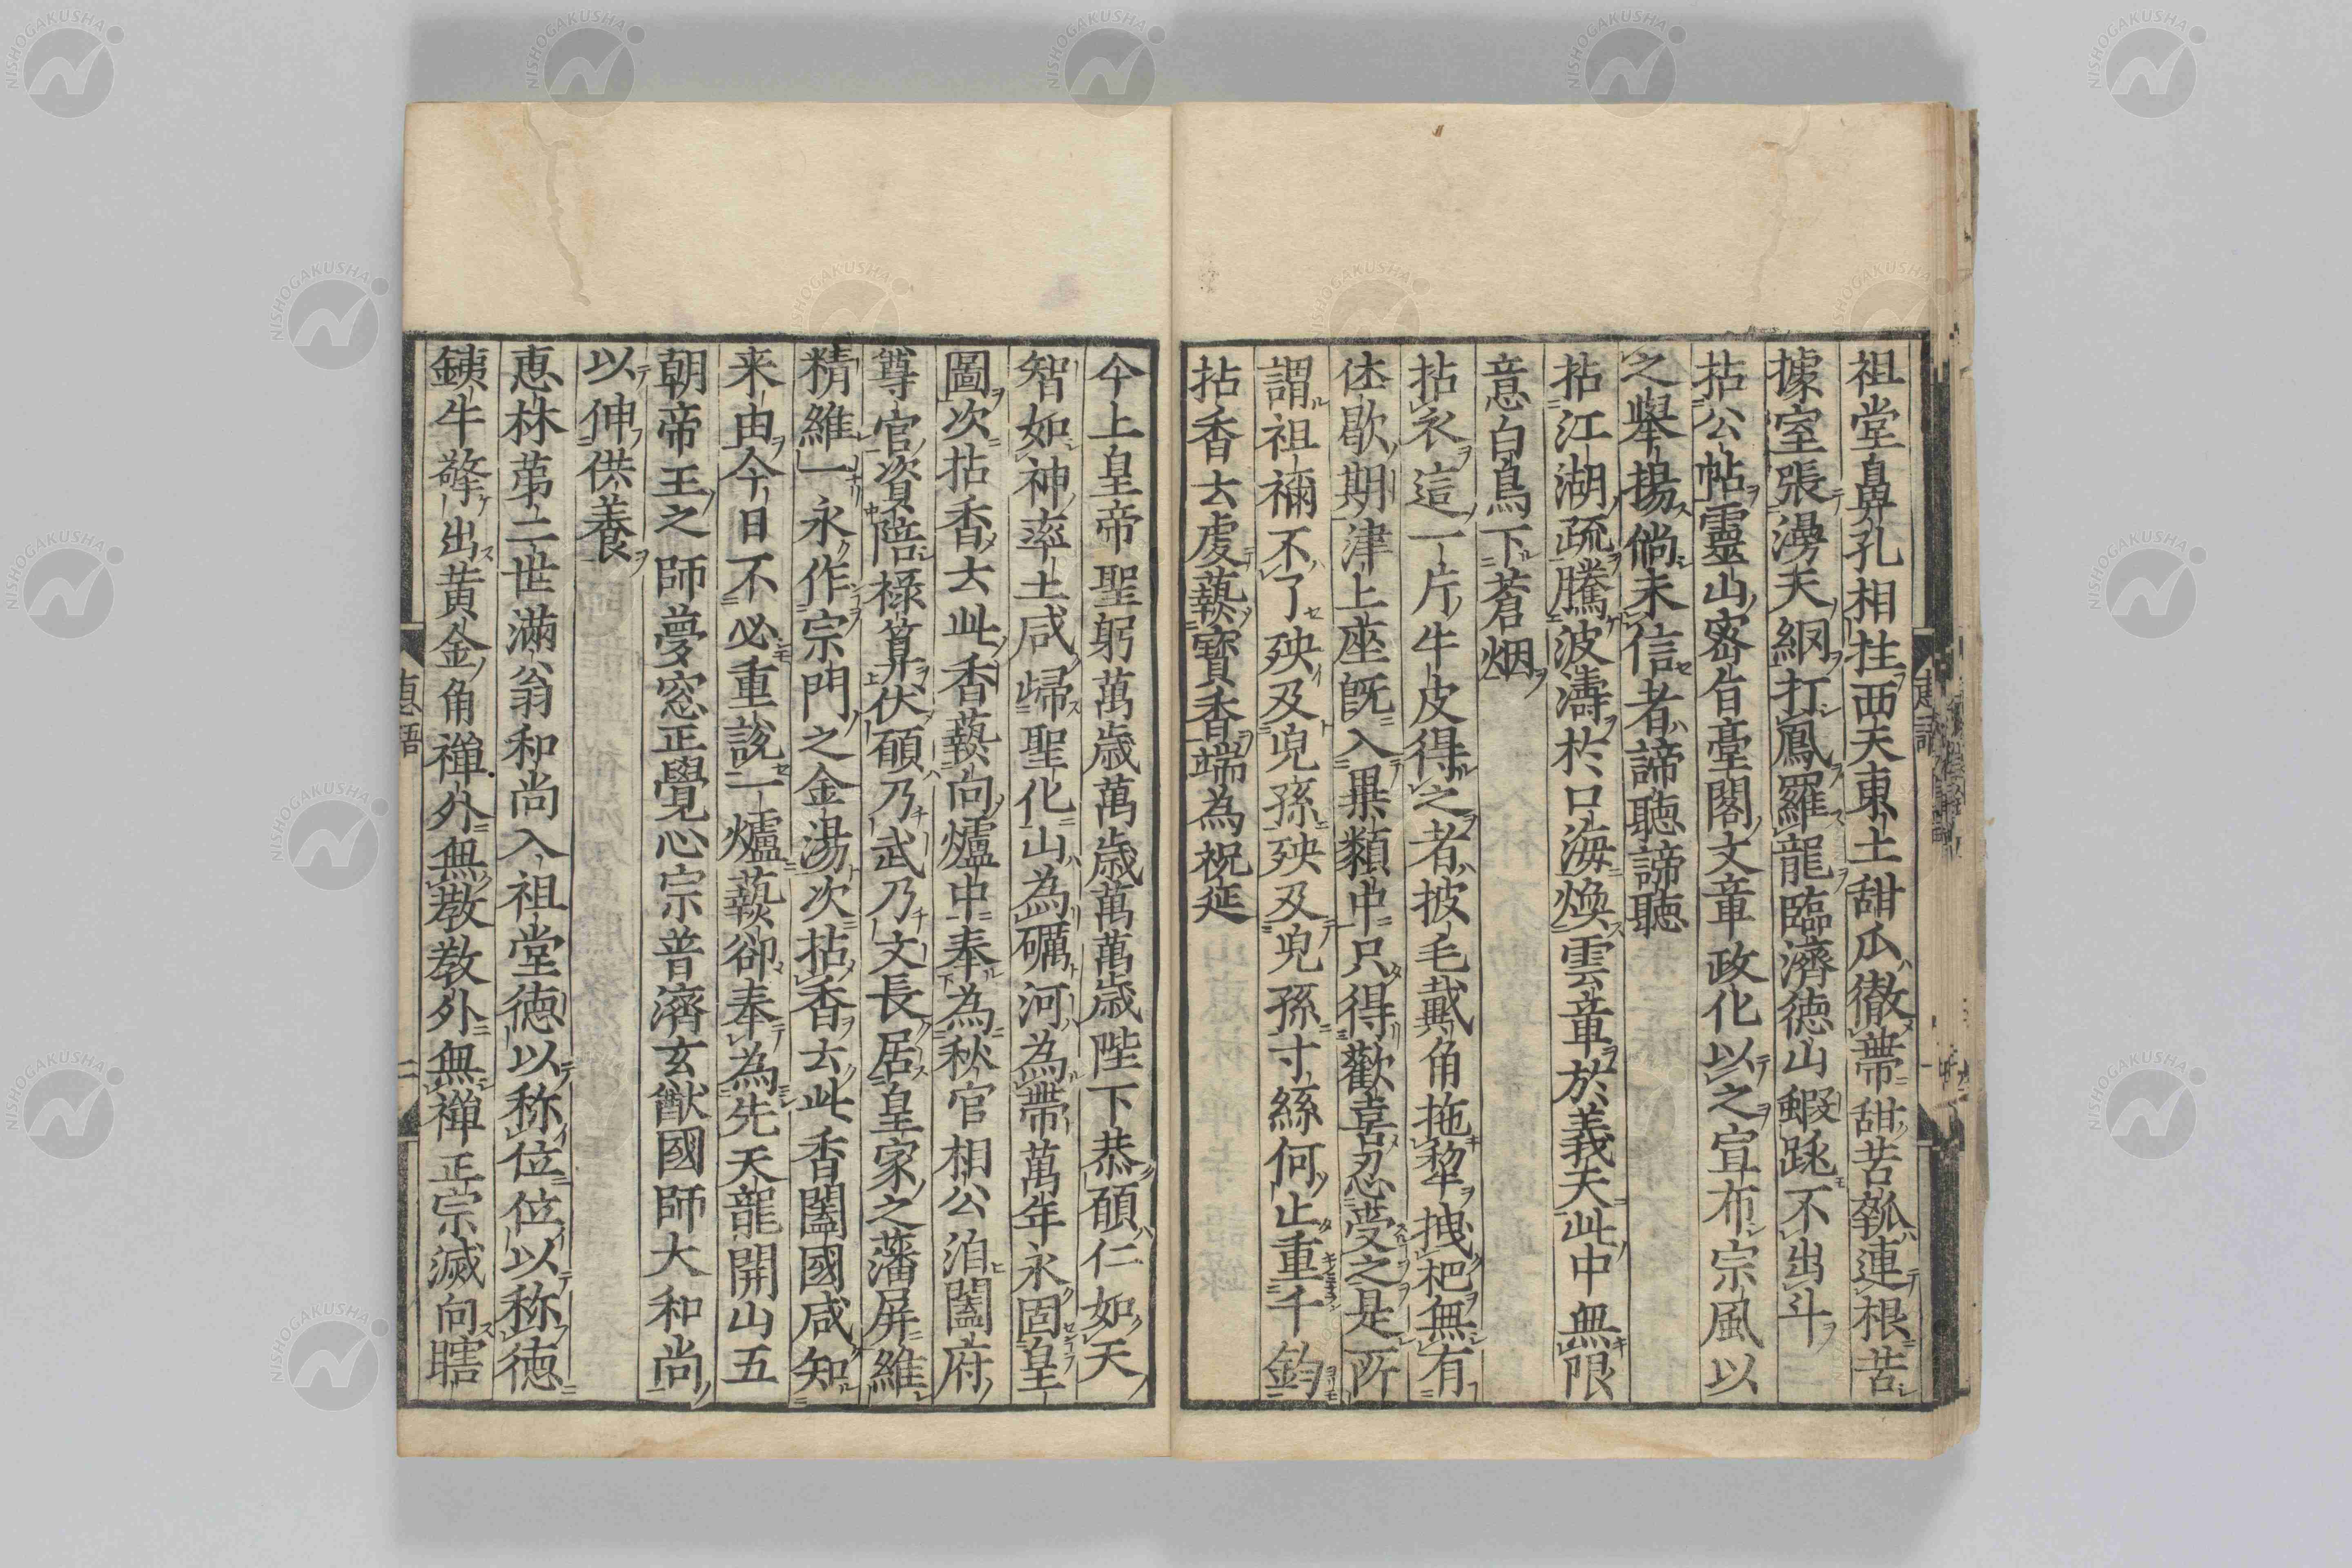 祖堂鼻孔相拄西天東土甜瓜徹蔕甜苦瓠連根苦
據室張漫天網打鳳羅龍臨濟徳山蝦跳不出斗
拈公帖靈山密旨臺閣文章政化以之宣布宗風以
之舉揚倘未信者諦聽諦聽
拈江湖疏騰波濤於口海煥雲章於義天此中無限
意白鳥下蒼烟
拈衣這一片牛皮得之者披毛戴角拖犂拽杷無有
休歇期津上座既入異類中只得歡喜忍受之是所
謂祖禰不了殃及兒孫殃及兒孫寸絲何止重千鈞
拈香云虔爇寶香端為祝延
今上皇帝聖躬萬歲萬歲萬萬歲陛下恭願仁如天
智如神率土咸歸聖化山為礪河為帶萬年永固皇
圖次拈香云此香爇向爐中奉為秋官相公洎闔府
尊官資陪禄算伏願乃武乃文長居皇家之藩屏維
精維一永作宗門之金湯次拈香云此香闔國咸知
来由今日不必重説一爐爇卻奉為先天龍開山五
朝帝王之師夢窓正覺心宗普濟玄猷國師大和尚
以伸供養
恵林第二世滿翁和尚入祖堂徳以称位位以称徳
銕牛擎出黄金角禅外無教教外無禅正宗滅向瞎
恵語
二
NISHOGAKUSHA